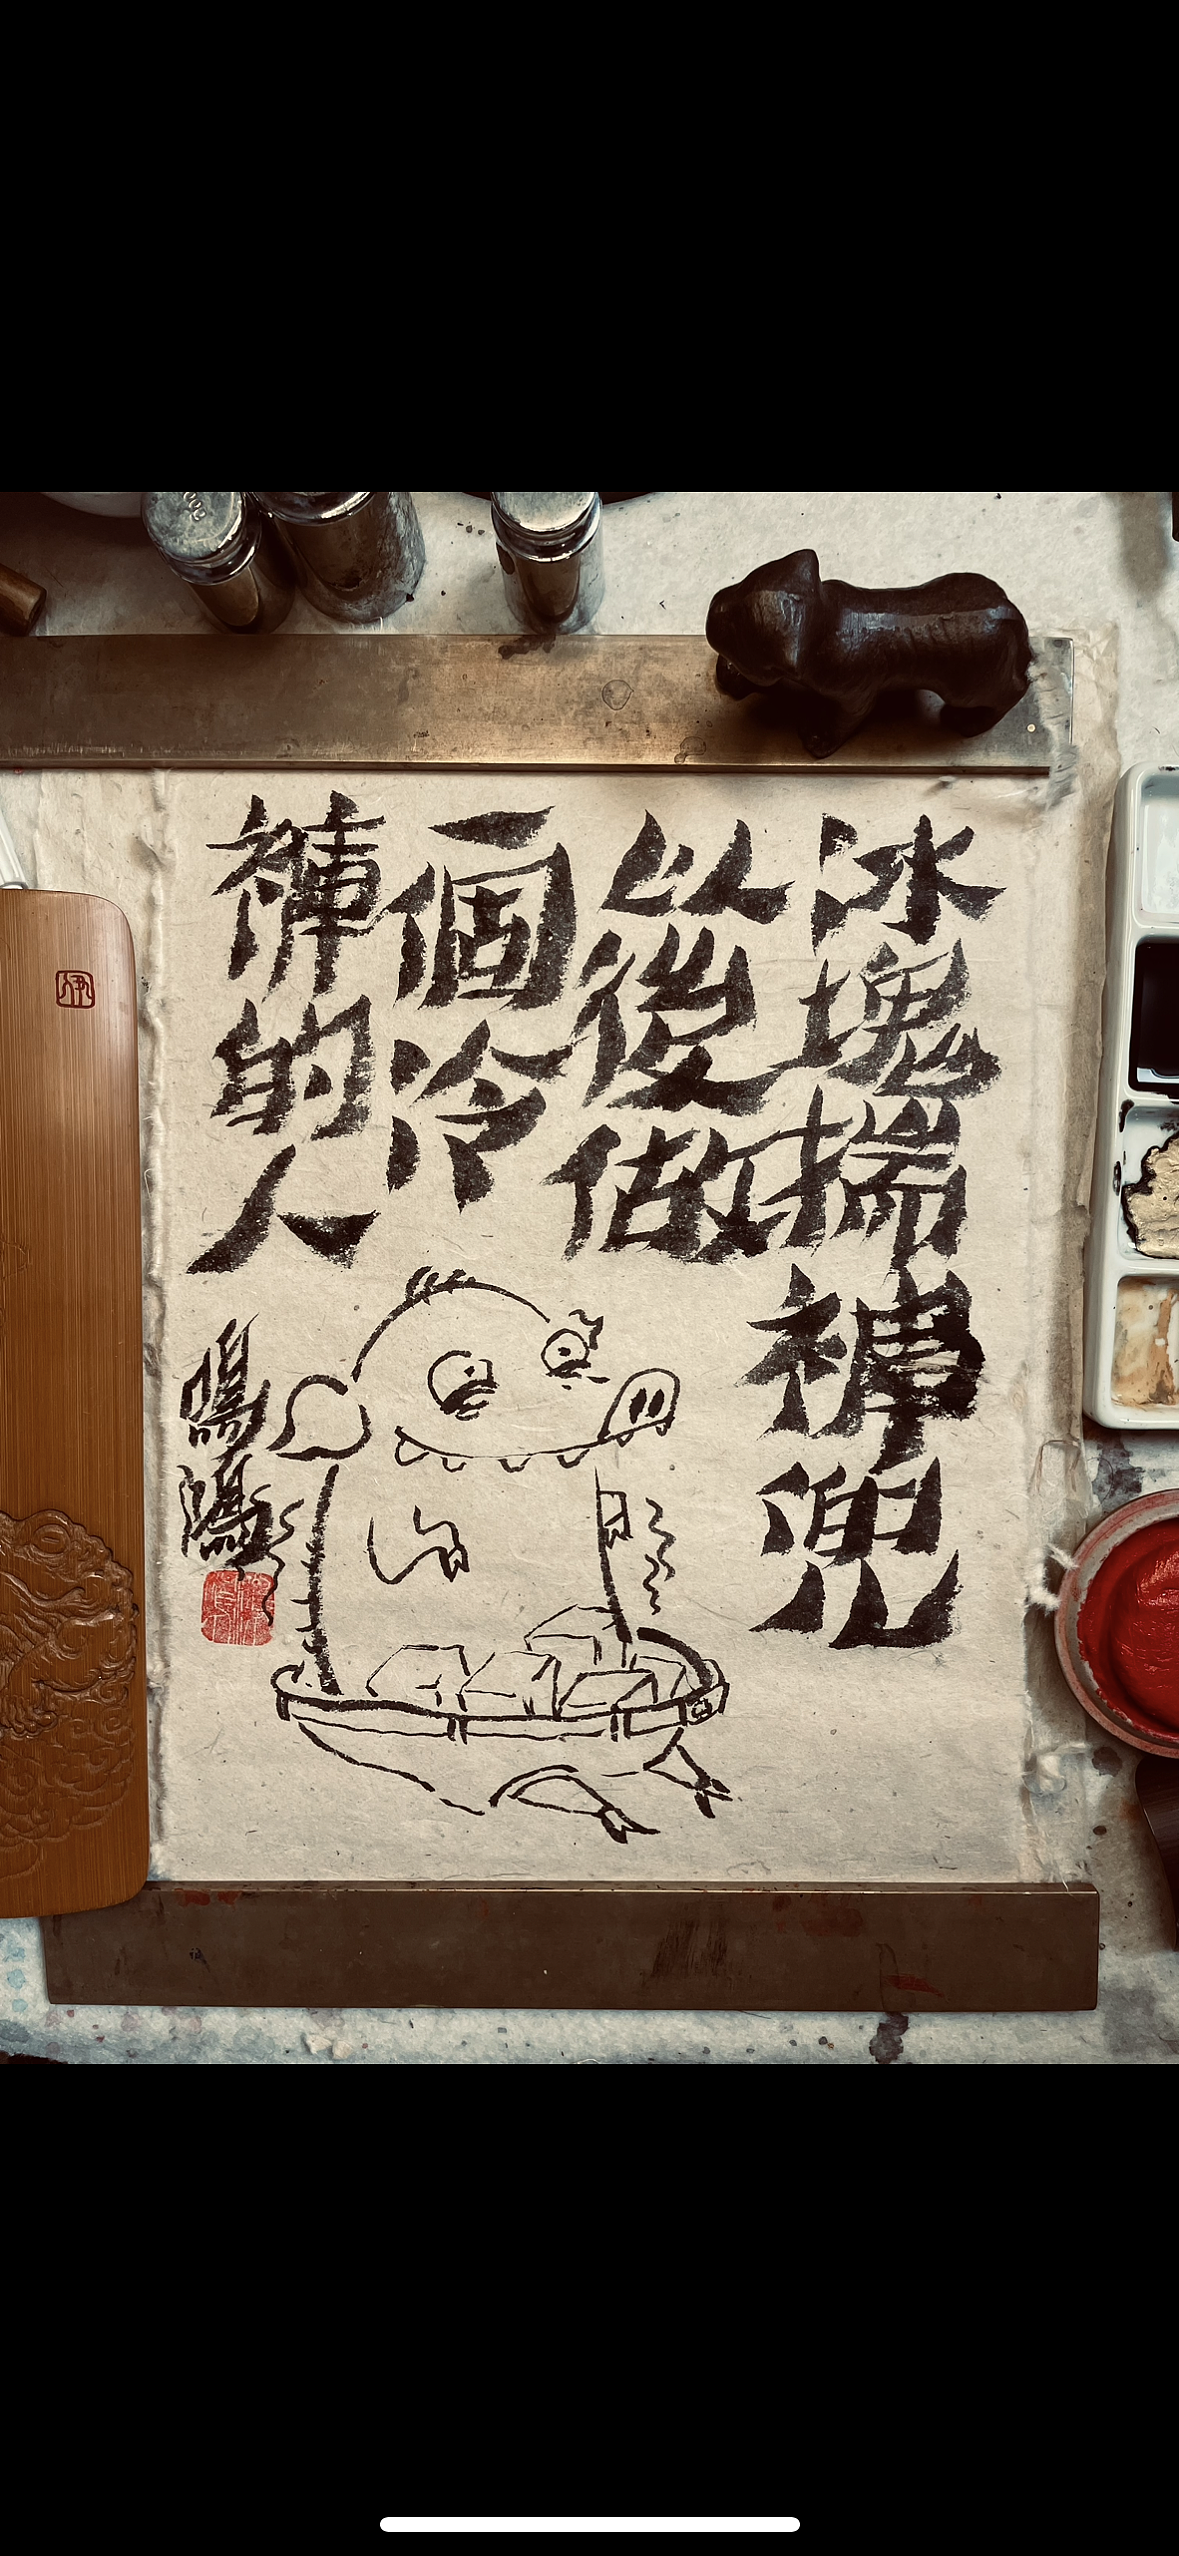 冰塊揣褲兜
以後做
一個冷
褲的人